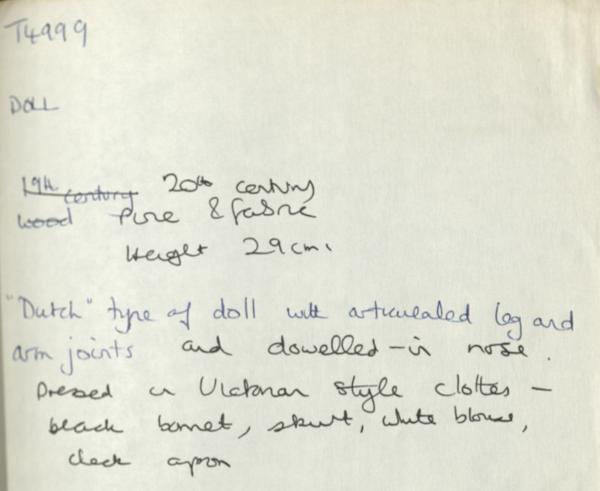 T4999
DOLL
19th century 20th century
wood Pine & fabric
Height 29cm.
"Dutch" type of doll with articulated leg and
arm joints and dowelled-in nose.
Dressed in Victorian style clothes -
black bonnet, skirt, white blouse,
check apron